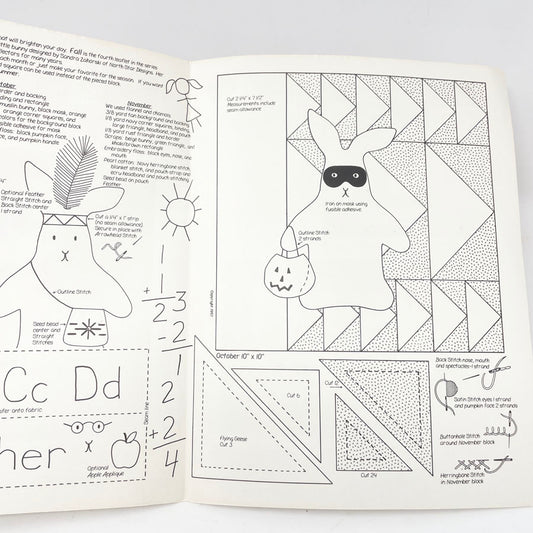 hat will brighten your day. Fall is the fourth leaflet in the series
ittle bunny designed by Sandra Zakorski of North Star Designs. Her
llectors for many years.
each month or just make your favorite for the season. If you want
d square can be used instead of the pieced block.
ummer.
October:
order and backing
nding and rectangle
muslin bunny, black mask, orange
orange corner squares, and
colors for the background block
isible adhesive for mask
floss: black pumpkin face,
e, and pumpkin handle
November:
We used flannel and chamois.
3/8 yard tan background and backing
1/8 yard navy corner squares, binding,
large triangle, headband, and pouch
1/8 yard rust triangle and border
Scraps: beige bunny, green triangle, and
khaki/brown rectangle
Embroidery floss: black eyes, nose, and
mouth
Pearl cotton: heavy herringbone stitch,
blanket stitch, and pouch strap and
ecru headband and pouch stitching
Seed bead on pouch
Feather
Optional Feather
Straight Stitch and
Back Stitch center
1 strand
Cut a 1/4" x 7" strip
(no seam allowance)
Secure in place with
Arrowhead Stitch
Outline Stitch
Seed bead
center and
Straight
Stitches
1
+1
23
-2
1
2
+2
4
Cc Dd
sfer onto fabric
her
Optional
Apple Applique
Seam line
Cut 2 1/4" x 7 1/2"
Measurements include
seam allowance
Iron on mask using
fusible adhesive.
Outline Stitch
2 strands
October 10" x 10"
Flying Geese
Cut 3
Cut 6
Cut 12
Cut 24
Back Stitch nose, mouth
and spectacles-1 strand
Satin Stitch eyes 1 strand
and pumpkin face 2 strands
Buttonhole Stitch
around November block
Herringbone Stitch
in November block